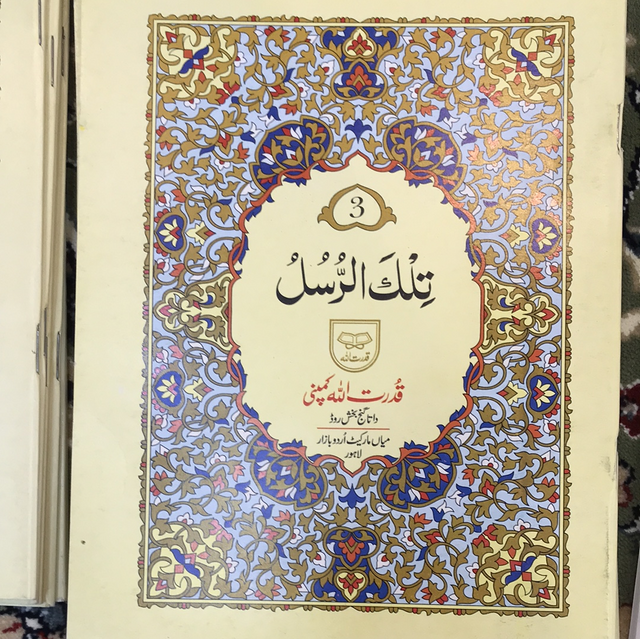 3
تِلْكَ الرُّسُلُ
قدرت اللہ
قُدرت اللہ کمپنی
داتا گنج بخش روڈ
میاں مارکیٹ اُردو بازار
لاہور